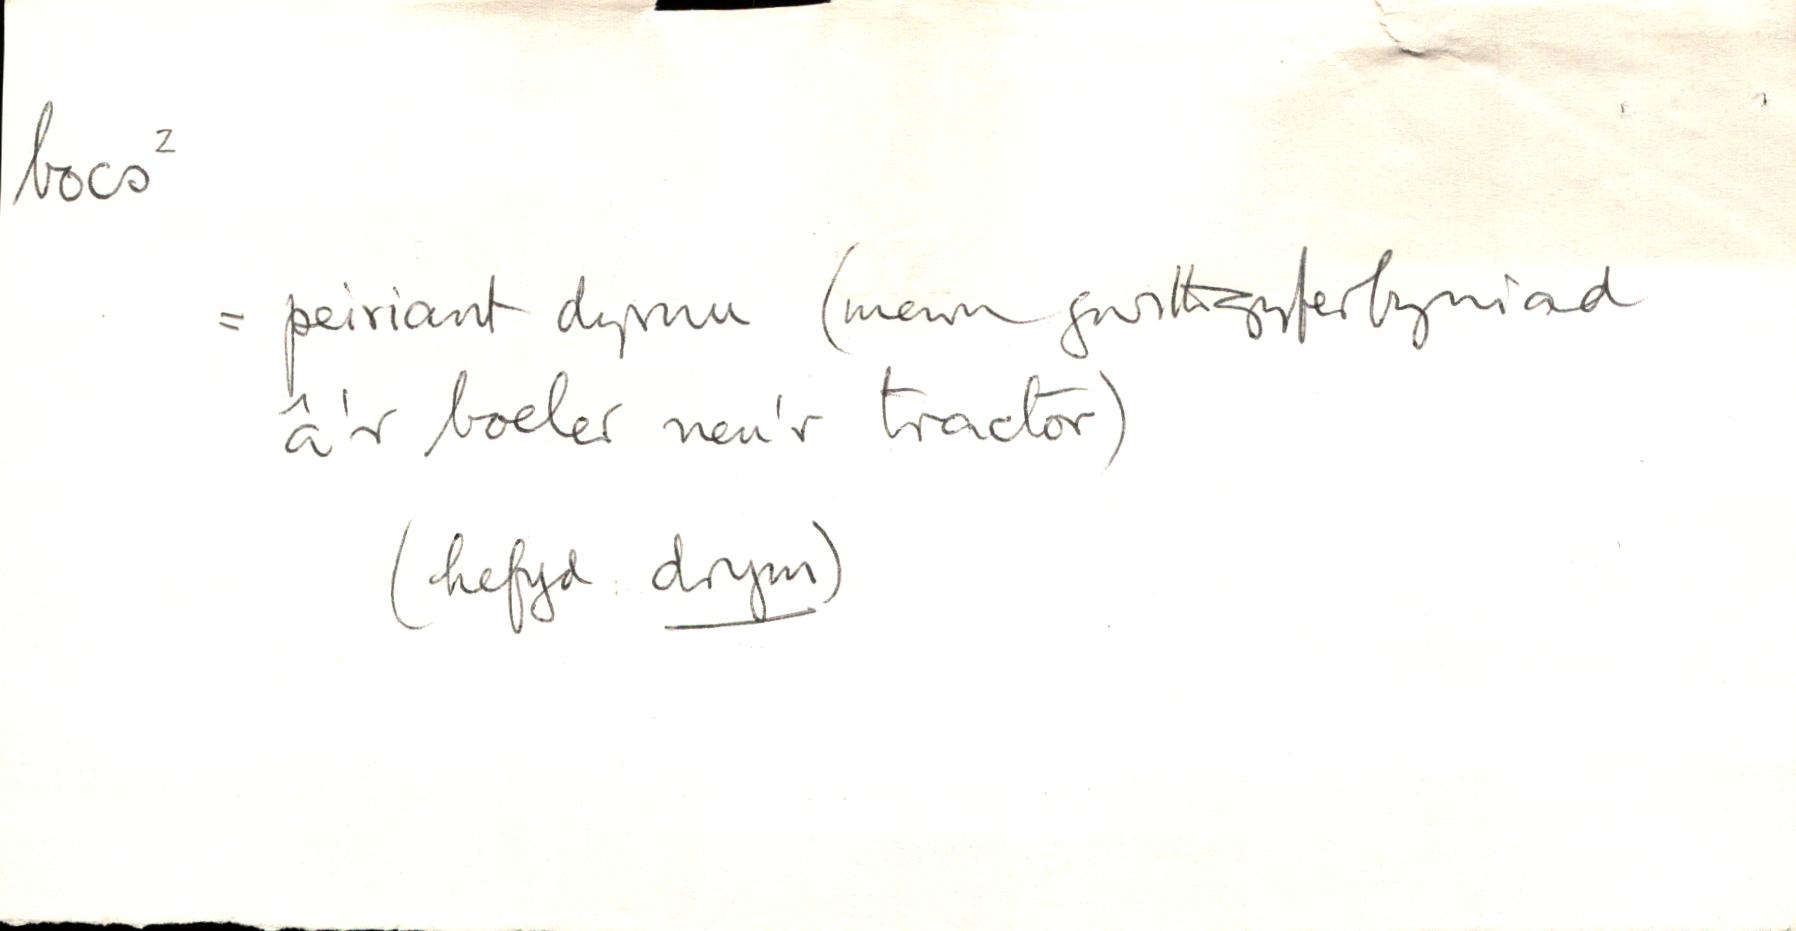 bocs²
= peiriant dyrnu (mewn gwrthgyferbyniad
â'r boeler neu'r tractor)
(hefyd drym)